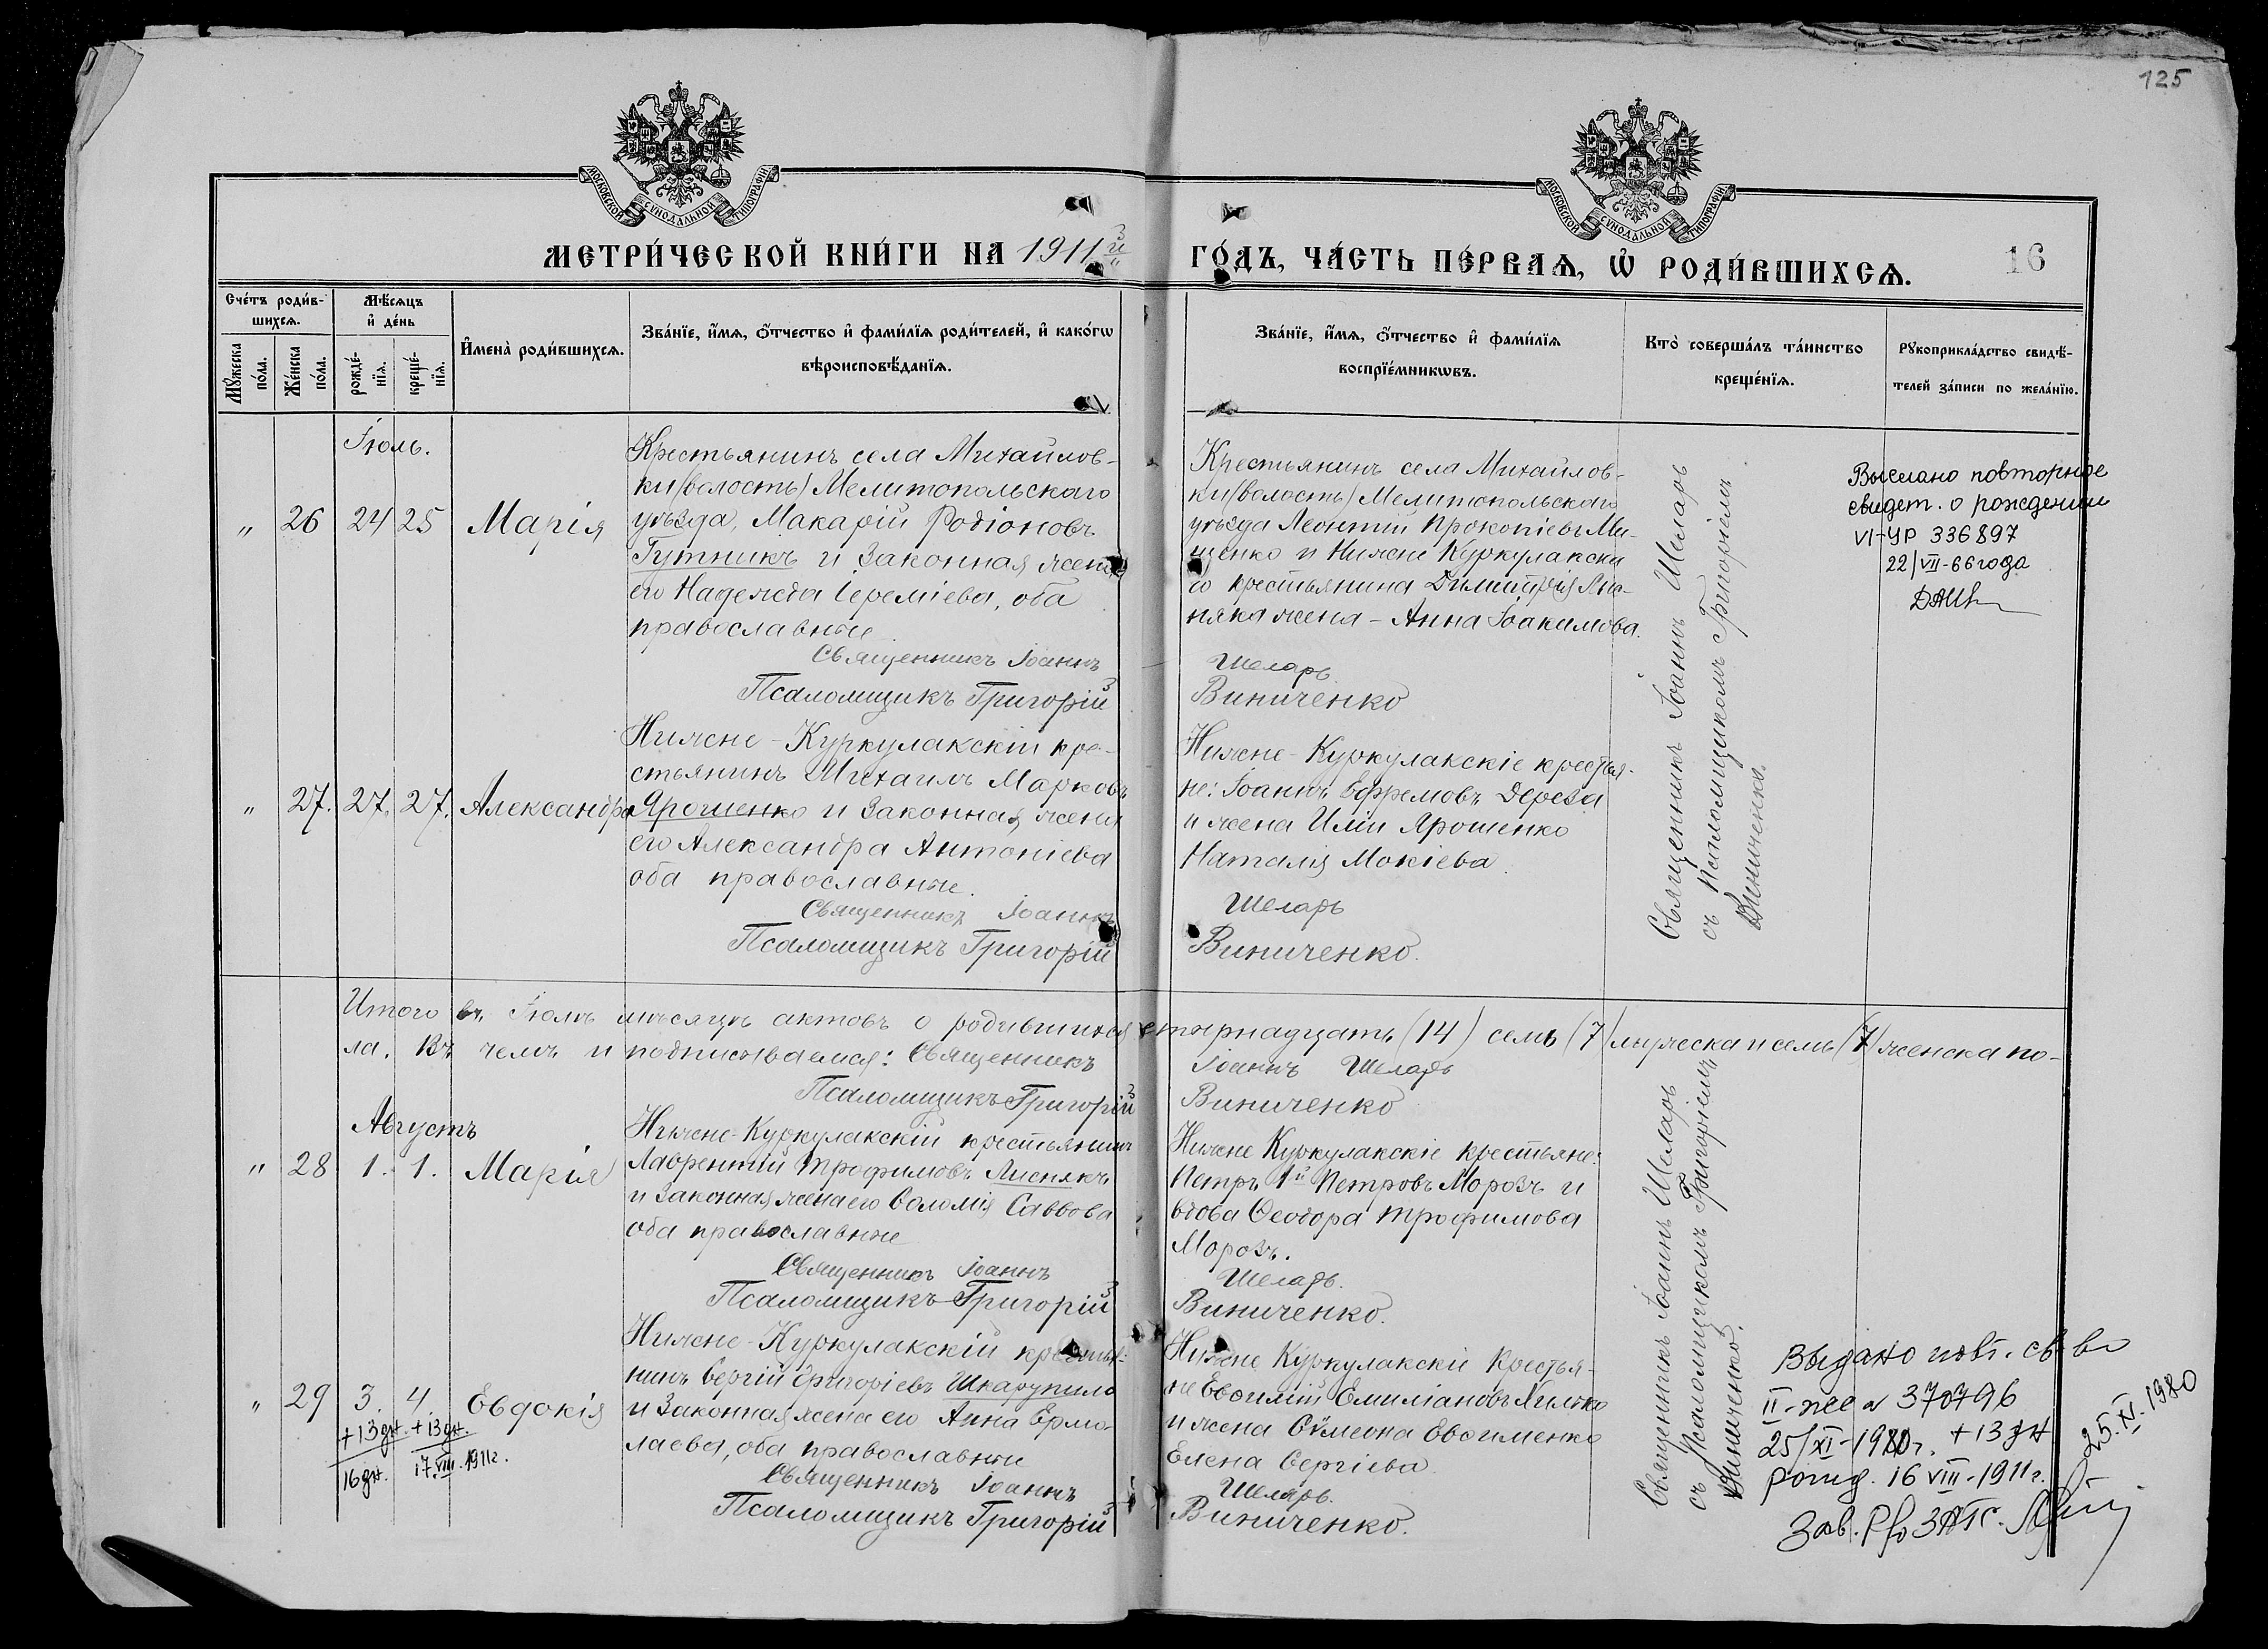 125
МОСКОВСКОЙ СУНОДАЛЬНОЙ ТИПОГРАФІИ
МОСКОВСКОЙ СУНОДАЛЬНОЙ ТИПОГРАФІИ
МЕТРИ́ЧЕСКОЙ КНИ́ГИ НА 1911й
ГО́ДЪ, ЧА́СТЬ ПЕ́РВАѦ, Ѡ РОДИ́ВШИХСѦ.
16
Сче́тъ роди́в-
шихсѧ.
Мѣ́сѧцъ
и҆ де́нь
Мꙋ́жеска
по́ла.
Же́нска
по́ла.
рожде́-
нїѧ.
креще́-
нїѧ.
И҆мена̀ роди́вшихсѧ.
Зва́нїе, и҆́мѧ, ѻ҆́тчество и҆ фами́лїѧ роди́телей, и҆ како́гѡ
вѣроисповѣ́данїѧ.
Зва́нїе, и҆́мѧ, ѻ҆́тчество и҆ фами́лїѧ
воспрїе́мникѡвъ.
Кто̀ соверша́лъ та́инство
креще́нїѧ.
Рꙋкоприкла́дство свидѣ́-
телей за́писи по жела́нїю.
Іюль.
„ 26 24 25 Марія
Крестьянинъ села Михайлов-
ки (волость) Мелитопольскаго
уѣзда, Макарій Родіоновъ
Гутникъ и законная жена
его Надежда Іереміева, оба
православные
Священникъ Іоаннъ
Псаломщикъ Григорій
Крестьянинъ села Михайлов-
ки (волость) Мелитопольскаго
уѣзда Леонтій Прокопіевъ Ми-
щенко и Нижне Куркулакска
го крестьянина Димитрія Лис-
няка жена - Анна Іоакимова.
Шеларь
Виниченко
Священникъ Іоаннъ Шеларь
съ Псаломщикомъ Григоріемъ
Виниченко.
Выслано повторное
свидет. о рождении
VI-УР 336897
22/VII-66 года
„ 27. 27. 27. Александра
Нижне-Куркулакскій кре-
стьянинъ Михаилъ Марковъ
Ярошенко и законная жена
его Александра Антоніева
оба православные.
Священникъ Іоаннъ
Псаломщикъ Григорій
Нижне-Куркулакскіе крестья-
не: Іоаннъ Ефремовъ Дереза
и жена Иліи Ярошенко
Наталія Мокіева.
Шеларь
Виниченко.
Итого въ Іюлѣ мѣсяцѣ актовъ о родившихся четырнадцать (14) семь (7) мужеска и семь (7) женска по-
ла. Въ чемъ и подписываемся: Священникъ Іоаннъ Шеларь
Псаломщикъ Григорій Виниченко
Августъ
„ 28 1. 1. Марія
Нижне-Куркулакскій крестьянинъ
Лаврентій Трофимовъ Лиснякъ
и законная жена его Соломія Саввова
оба православные
Священникъ Іоаннъ
Псаломщикъ Григорій
Нижне Куркулакскіе крестьяне:
Петръ 1й Петровъ Морозъ и
вдова Ѳеодора Трофимова
Морозъ.
Шеларь.
Виниченко.
Священникъ Іоаннъ Шеларь
съ Псаломщикомъ Григоріемъ
Виниченко.
„ 29 3. 4. Евдокія
+13дн. +13дн.
16дн. 17.VIII.1911г.
Нижне-Куркулакскій крестья-
нинъ Сергій Григоріевъ Шкарупило
и законная жена его Анна Ермо-
лаева, оба православные
Священникъ Іоаннъ
Псаломщикъ Григорій
Нижне Куркулакскіе Крестья-
не Евѳимій Емиліановъ
и жена Сѷмеона Евѳименко
Елена Сергіева.
Шеларь.
Виниченко.
Выдано повт. св-во
370796
25/XI-1980г. +13дн
рожд. 16 VIII-1911г.
25.XI.1980
Зав. ЗАГС.